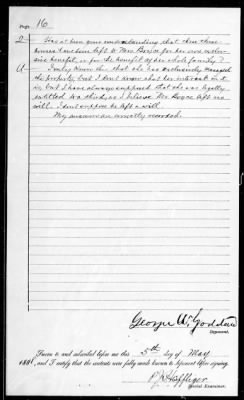 Page 16
Q Has it been your understanding that these three
homes have been left to Mrs. Boyce for her own exclu-
sive benefit, or for the benefit of her whole family?
A I only know this that she has exclusively managed
the property, but I don't know what her interest in it
is, but I have always supposed that she was legally
entitled to a third, as I believe Mr. Boyce left no
will. I don't suppose he left a will.
My answers are correctly recorded.
George W. Goddard
Deponent.
Sworn to and subscribed before me this 5th day of May
188 , and I certify that the contents were fully made known to deponent before signing.
Special Examiner.